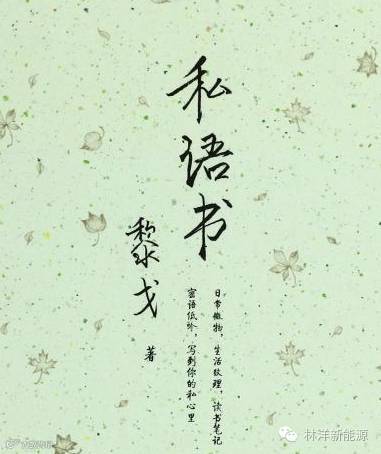 私语书
黎戈
著
日常微物，生活纹理，读书笔记
密语低吟，写到你的私心里
林洋新能源